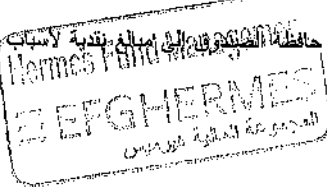 حافظة الصندوق إلى مبالغ نقدية لأسباب
Hermes Fund Management
EFGHERMES
المجموعة المالية هيرميس